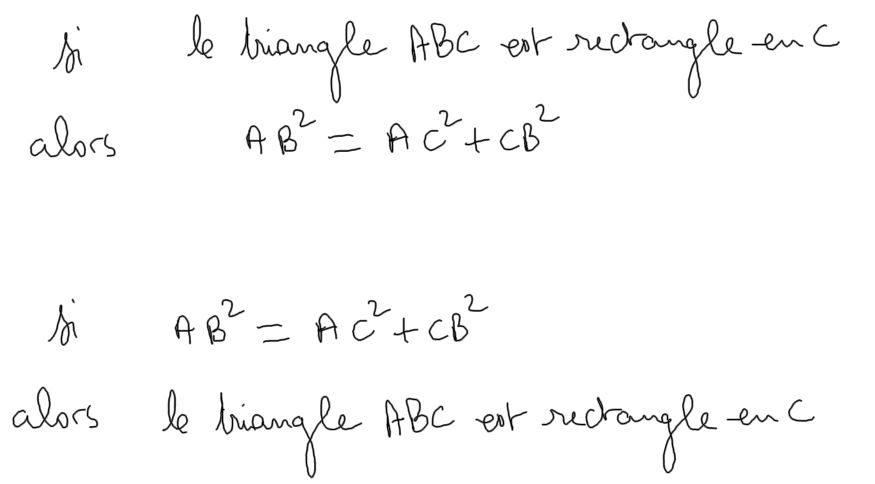 si le triangle ABC est rectangle en C
alors AB² = AC² + CB²
si AB² = AC² + CB²
alors le triangle ABC est rectangle en C